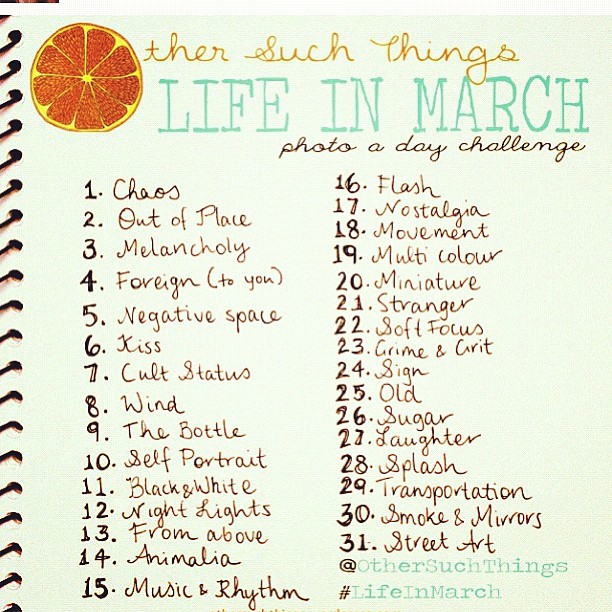 ther Such Things
LIFE IN MARCH
photo a day challenge
1. Chaos
2. Out of Place
3. Melancholy
4. Foreign (to you)
5. Negative space
6. Kiss
7. Cult Status
8. Wind
9. The Bottle
10. Self Portrait
11. Black&White
12. Night Lights
13. From above
14. Animalia
15. Music & Rhythm
16. Flash
17. Nostalgia
18. Movement
19. Multi colour
20. Miniature
21. Stranger
22. Soft Focus
23. Grime & Grit
24. Sign
25. Old
26. Sugar
27. Laughter
28. Splash
29. Transportation
30. Smoke & Mirrors
31. Street Art
@OtherSuchThings
#LifeInMarch